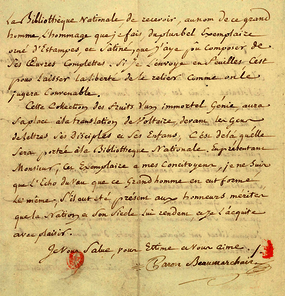 La Bibliothèque Nationale de recevoir, au nom de ce grand
homme, l'hommage que je fais du plus bel Exemplaire
orné d'Estampes, et Satiné, que j'aye pu composer, de
Ses Œuvres Complettes. Si je l'envoye en feuilles c'est
pour laisser la liberté de le relier comme on le
jugera Convenable.
Cette Collection des fruits d'un immortel Génie aura
sa place à la translation de Voltaire, devant les Gens
de lettres Ses disciples et Ses Enfans, C'est de là qu'elle
Sera portée à la Bibliothèque Nationale. En présentant
Monsieur, Cet Exemplaire à mes Concitoyens, je ne suis
que l'Echo du vœu que ce Grand homme en eut formé
lui même, S'il eut été présent aux honneurs mérités
que la Nation et Son Siècle lui rendent et je l'acquite
avec plaisir.
Je Vous Salue, Vous Estime et Vous aime.
Caron Beaumarchais